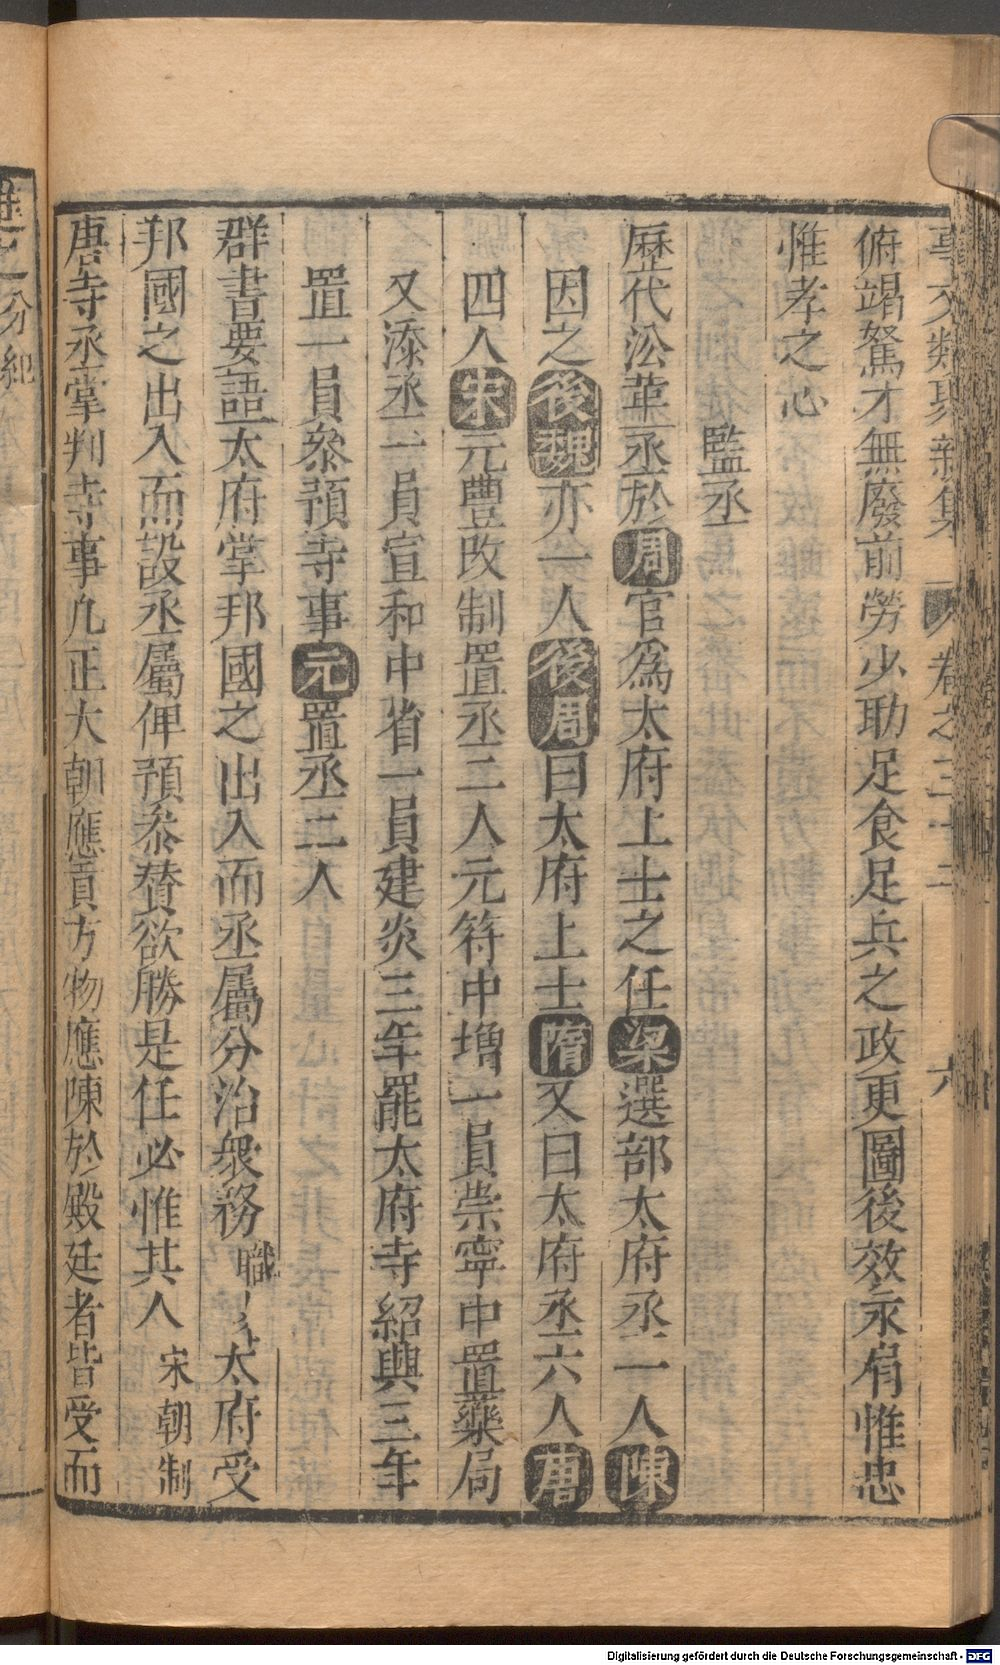 事文類聚新集 卷之三十二 六
俯竭駑才無廢前勞少助足食足兵之政更圖後效永肩惟忠
惟孝之心
監丞
歷代沿革丞於周官爲太府上士之任梁選部太府丞一人陳
因之後魏亦一人後周曰太府上士隋又曰太府丞六人唐
四人宋元豐改制置丞二人元符中增一員崇寧中置藥局
又添丞一員宣和中省一員建炎三年罷太府寺紹興三年
置一員叅預寺事元置丞二人
群書要語太府掌邦國之出入而丞屬分治衆務職 太府受
邦國之出入而設丞屬俾預叅贊欲勝是任必惟其人宋朝制
唐寺丞掌判寺事凢正大朝應貢方物應陳於殿廷者皆受而
進之分紀
Digitalisierung gefördert durch die Deutsche Forschungsgemeinschaft - DFG